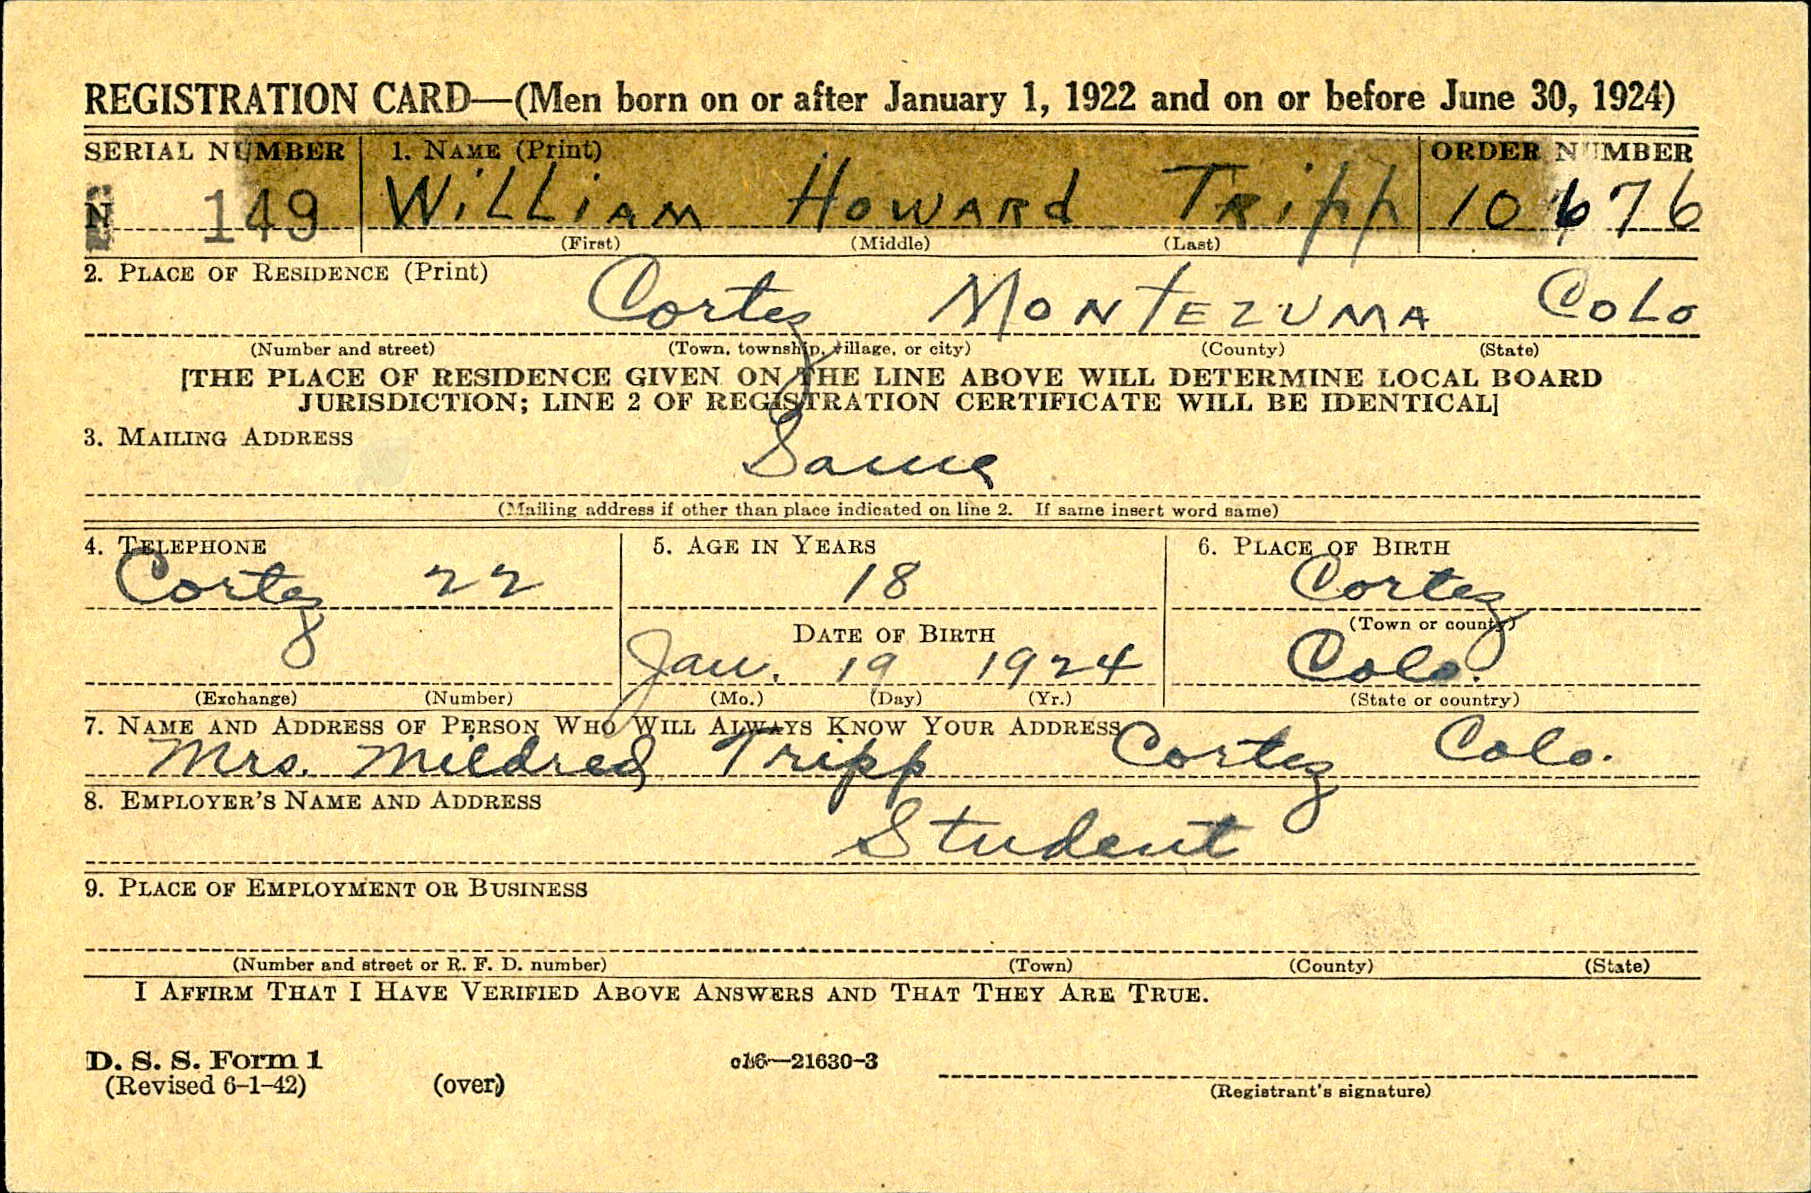 REGISTRATION CARD—(Men born on or after January 1, 1922 and on or before June 30, 1924)
SERIAL NUMBER 1. NAME (Print) ORDER NUMBER
N 149 WiLLiAM HoWARd TRipp 10676
(First) (Middle) (Last)
2. PLACE OF RESIDENCE (Print)
Cortez MONTEZUMA COLO
(Number and street) (Town, township, village, or city) (County) (State)
[THE PLACE OF RESIDENCE GIVEN ON THE LINE ABOVE WILL DETERMINE LOCAL BOARD
JURISDICTION; LINE 2 OF REGISTRATION CERTIFICATE WILL BE IDENTICAL]
3. MAILING ADDRESS
Same
(Mailing address if other than place indicated on line 2. If same insert word same)
4. TELEPHONE 5. AGE IN YEARS 6. PLACE OF BIRTH
Cortez 22 18 Cortez
DATE OF BIRTH (Town or county)
Jan. 19 1924 Colo.
(Exchange) (Number) (Mo.) (Day) (Yr.) (State or country)
7. NAME AND ADDRESS OF PERSON WHO WILL ALWAYS KNOW YOUR ADDRESS
Mrs. Mildred Tripp Cortez Colo.
8. EMPLOYER'S NAME AND ADDRESS
Student
9. PLACE OF EMPLOYMENT OR BUSINESS
(Number and street or R. F. D. number) (Town) (County) (State)
I AFFIRM THAT I HAVE VERIFIED ABOVE ANSWERS AND THAT THEY ARE TRUE.
D. S. S. Form 1 c16—21630-3
(Revised 6-1-42) (over) (Registrant's signature)